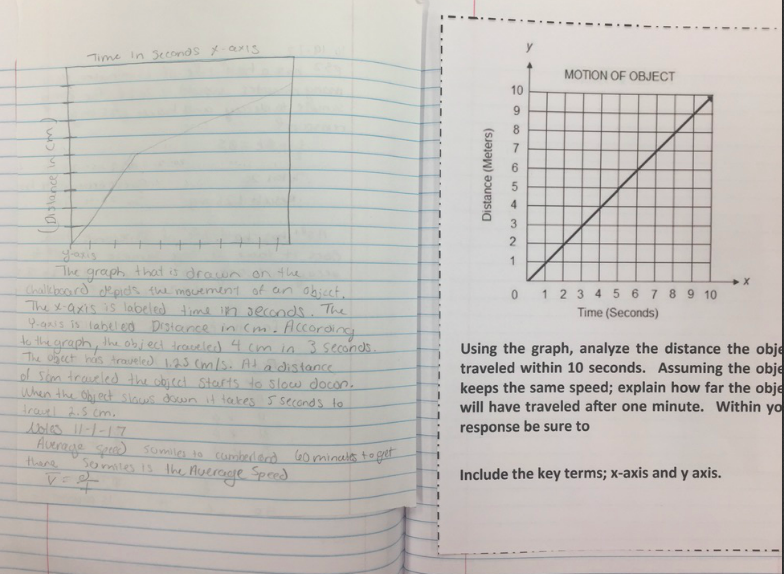 Time in Seconds x-axis
(Distance in cm)
y-axis
The graph that is drawn on the
chalkboard depicts the movement of an object.
The x-axis is labeled time in seconds. The
y-axis is labeled Distance in cm. According
to the graph, the object traveled 4 cm in 3 seconds.
The object has traveled 1.25 cm/s. At a distance
of 5cm traveled the object starts to slow down.
When the object slows down it takes 5 seconds to
travel 2.5 cm.
Notes 11-1-17
Average speed 50miles to cumberland 60 minutes to get
there 50miles is the Average Speed
V =
y
MOTION OF OBJECT
10
9
8
7
6
5
4
3
2
1
Distance (Meters)
0 1 2 3 4 5 6 7 8 9 10
x
Time (Seconds)
Using the graph, analyze the distance the obje
traveled within 10 seconds. Assuming the obje
keeps the same speed; explain how far the obje
will have traveled after one minute. Within yo
response be sure to
Include the key terms; x-axis and y axis.